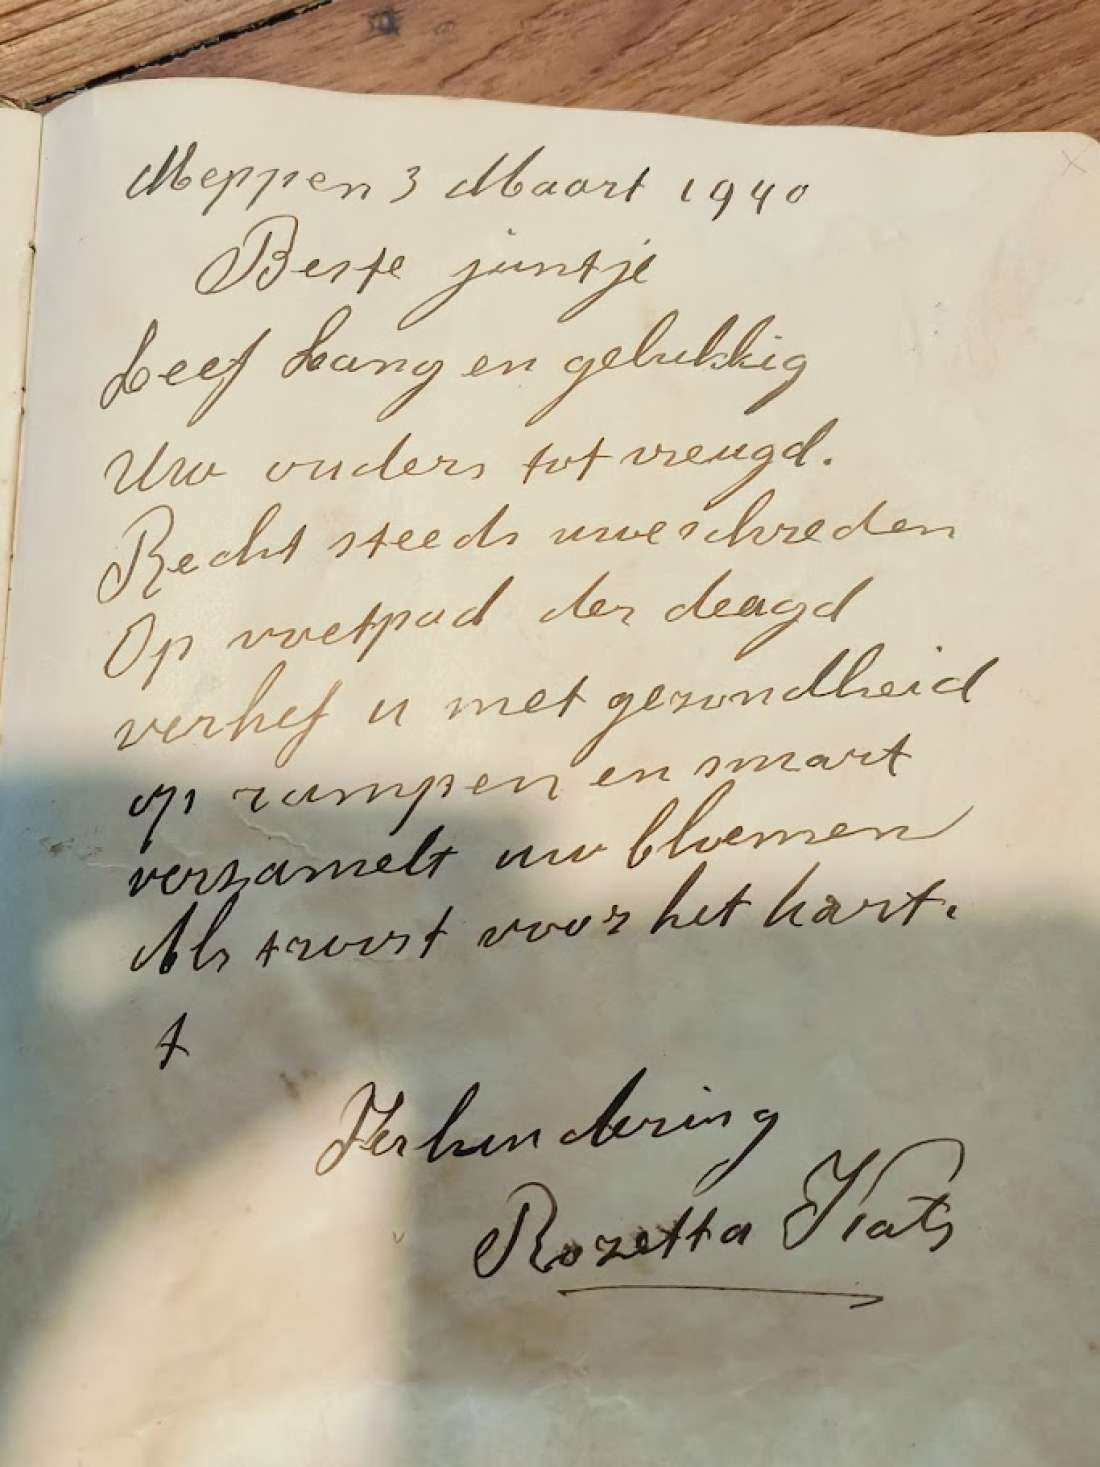 Meppen 3 Maart 1940
Beste juntje
Leef Lang en gelukkig
Uw ouders tot vreugd.
Recht steeds uwe schreden
Op voetpad der deugd
verhef u met gezondheid
op rampen en smart
verzamelt uw bloemen
Als troost voor het hart.
t
Ter herindering
Rozetta Kats